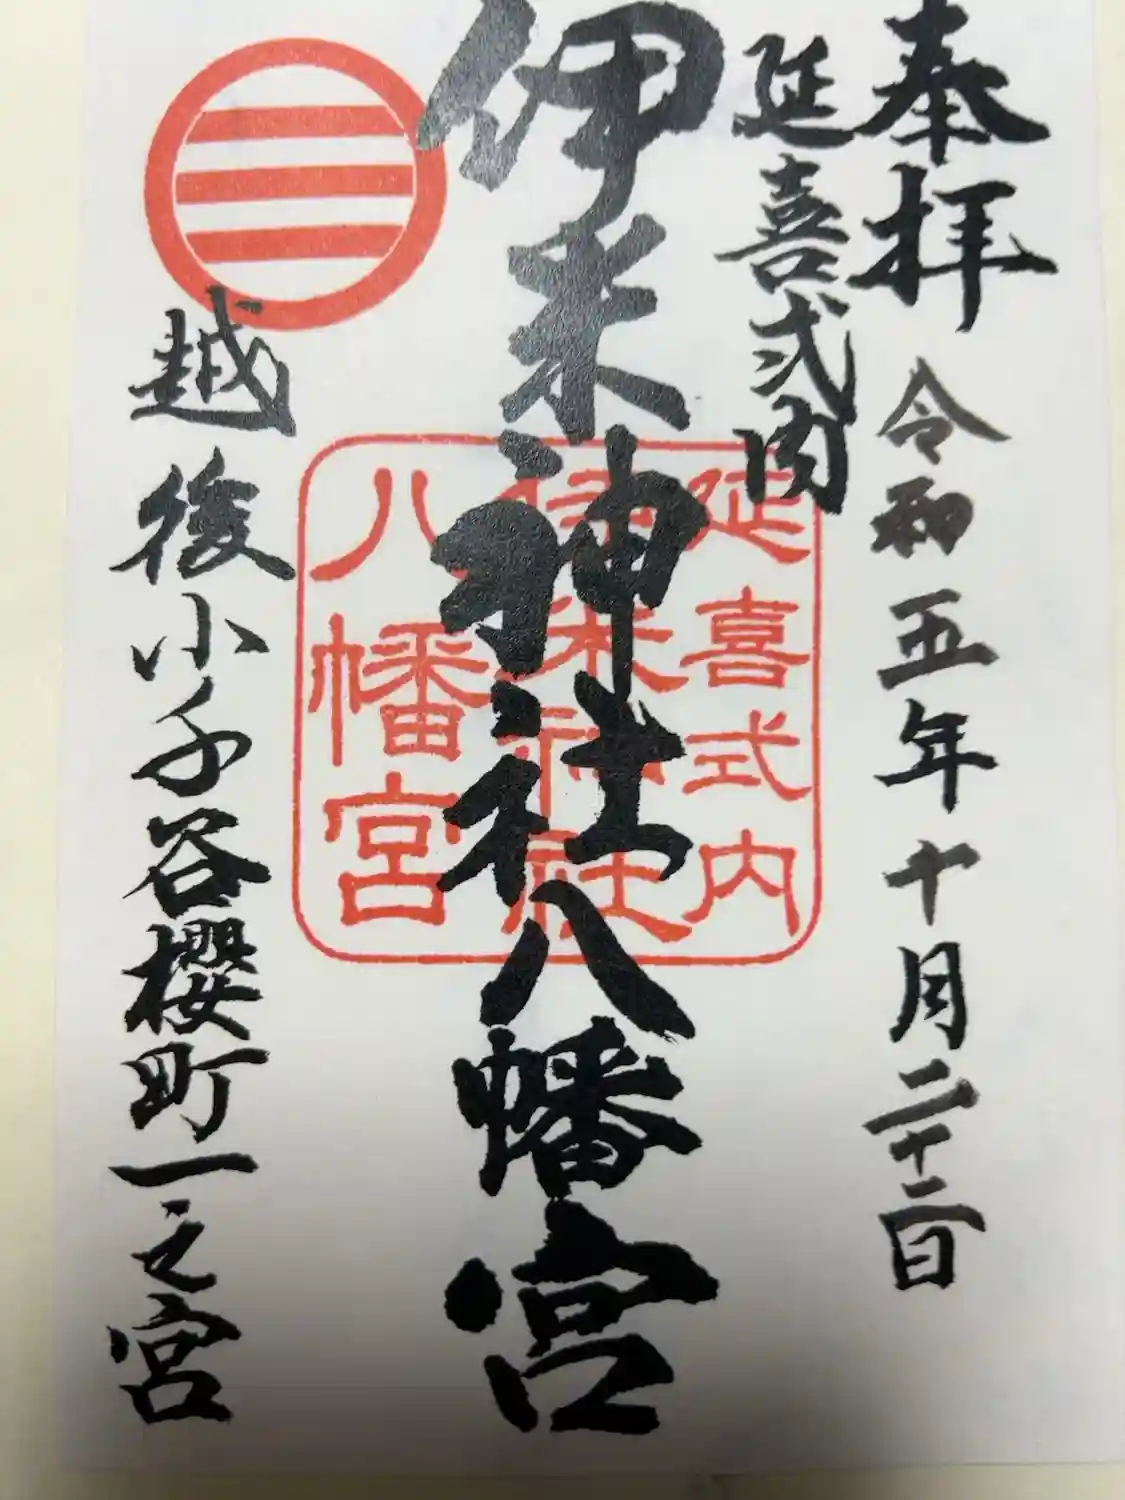 奉拝 令和五年十月二十二日
延喜式内
伊米神社八幡宮
越後小千谷櫻町一之宮
延喜式内
伊米神社
八幡宮